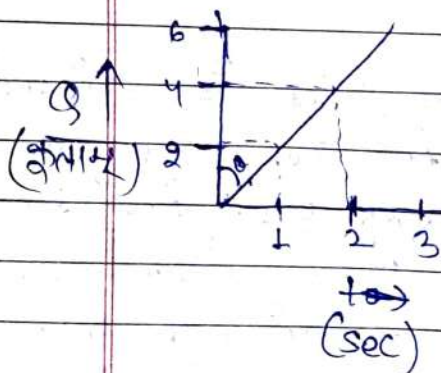 6
4
Q
(कूलाम) 2
θ
1 2 3
t→
(sec)